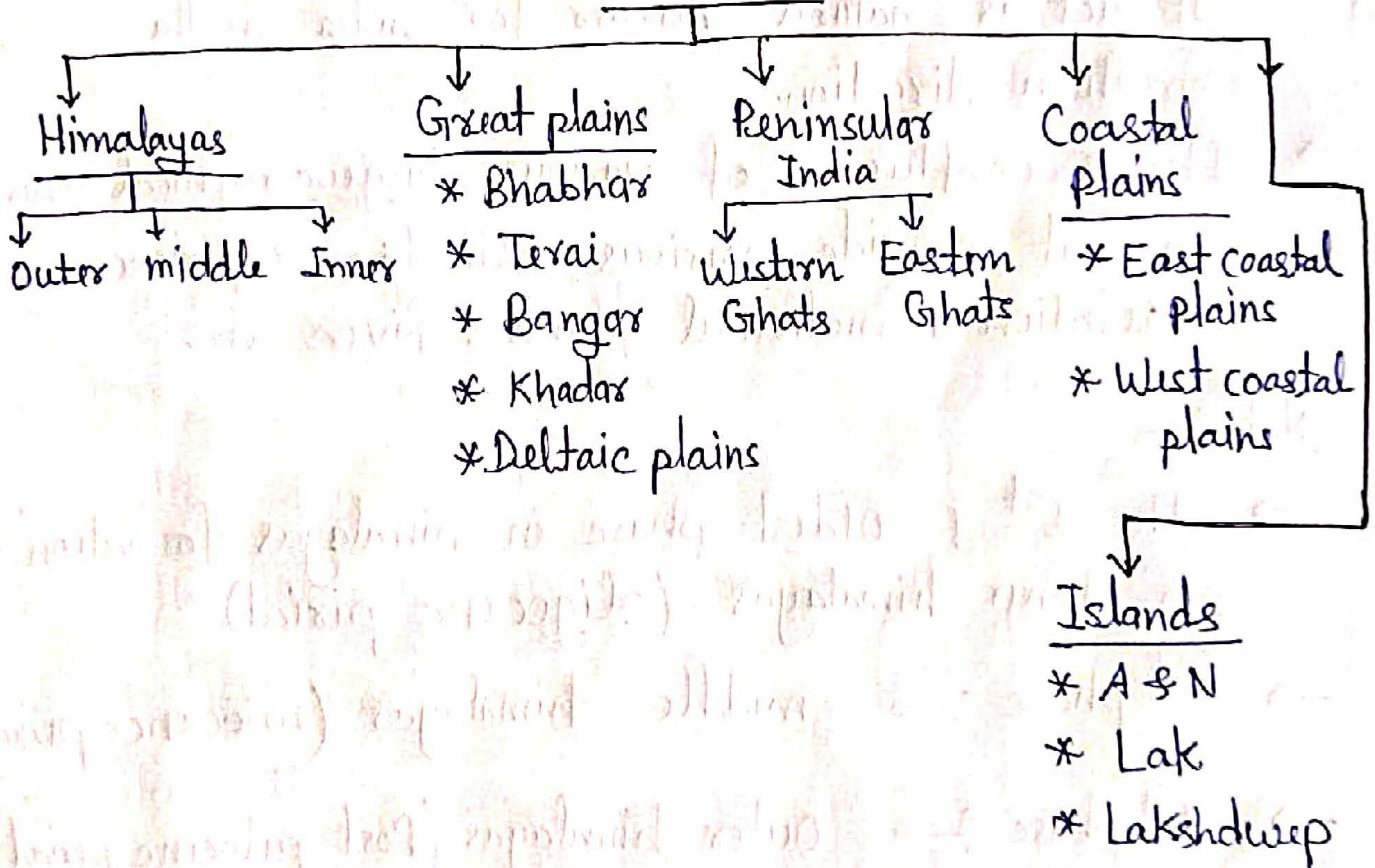 Himalayas
Outer middle Inner
Great plains
* Bhabhar
* Terai
* Bangar
* Khadar
* Deltaic plains
Peninsular
India
Western Eastern
Ghats Ghats
Coastal
plains
* East coastal
plains
* West coastal
plains
Islands
* A & N
* Lak
* Lakshdweep